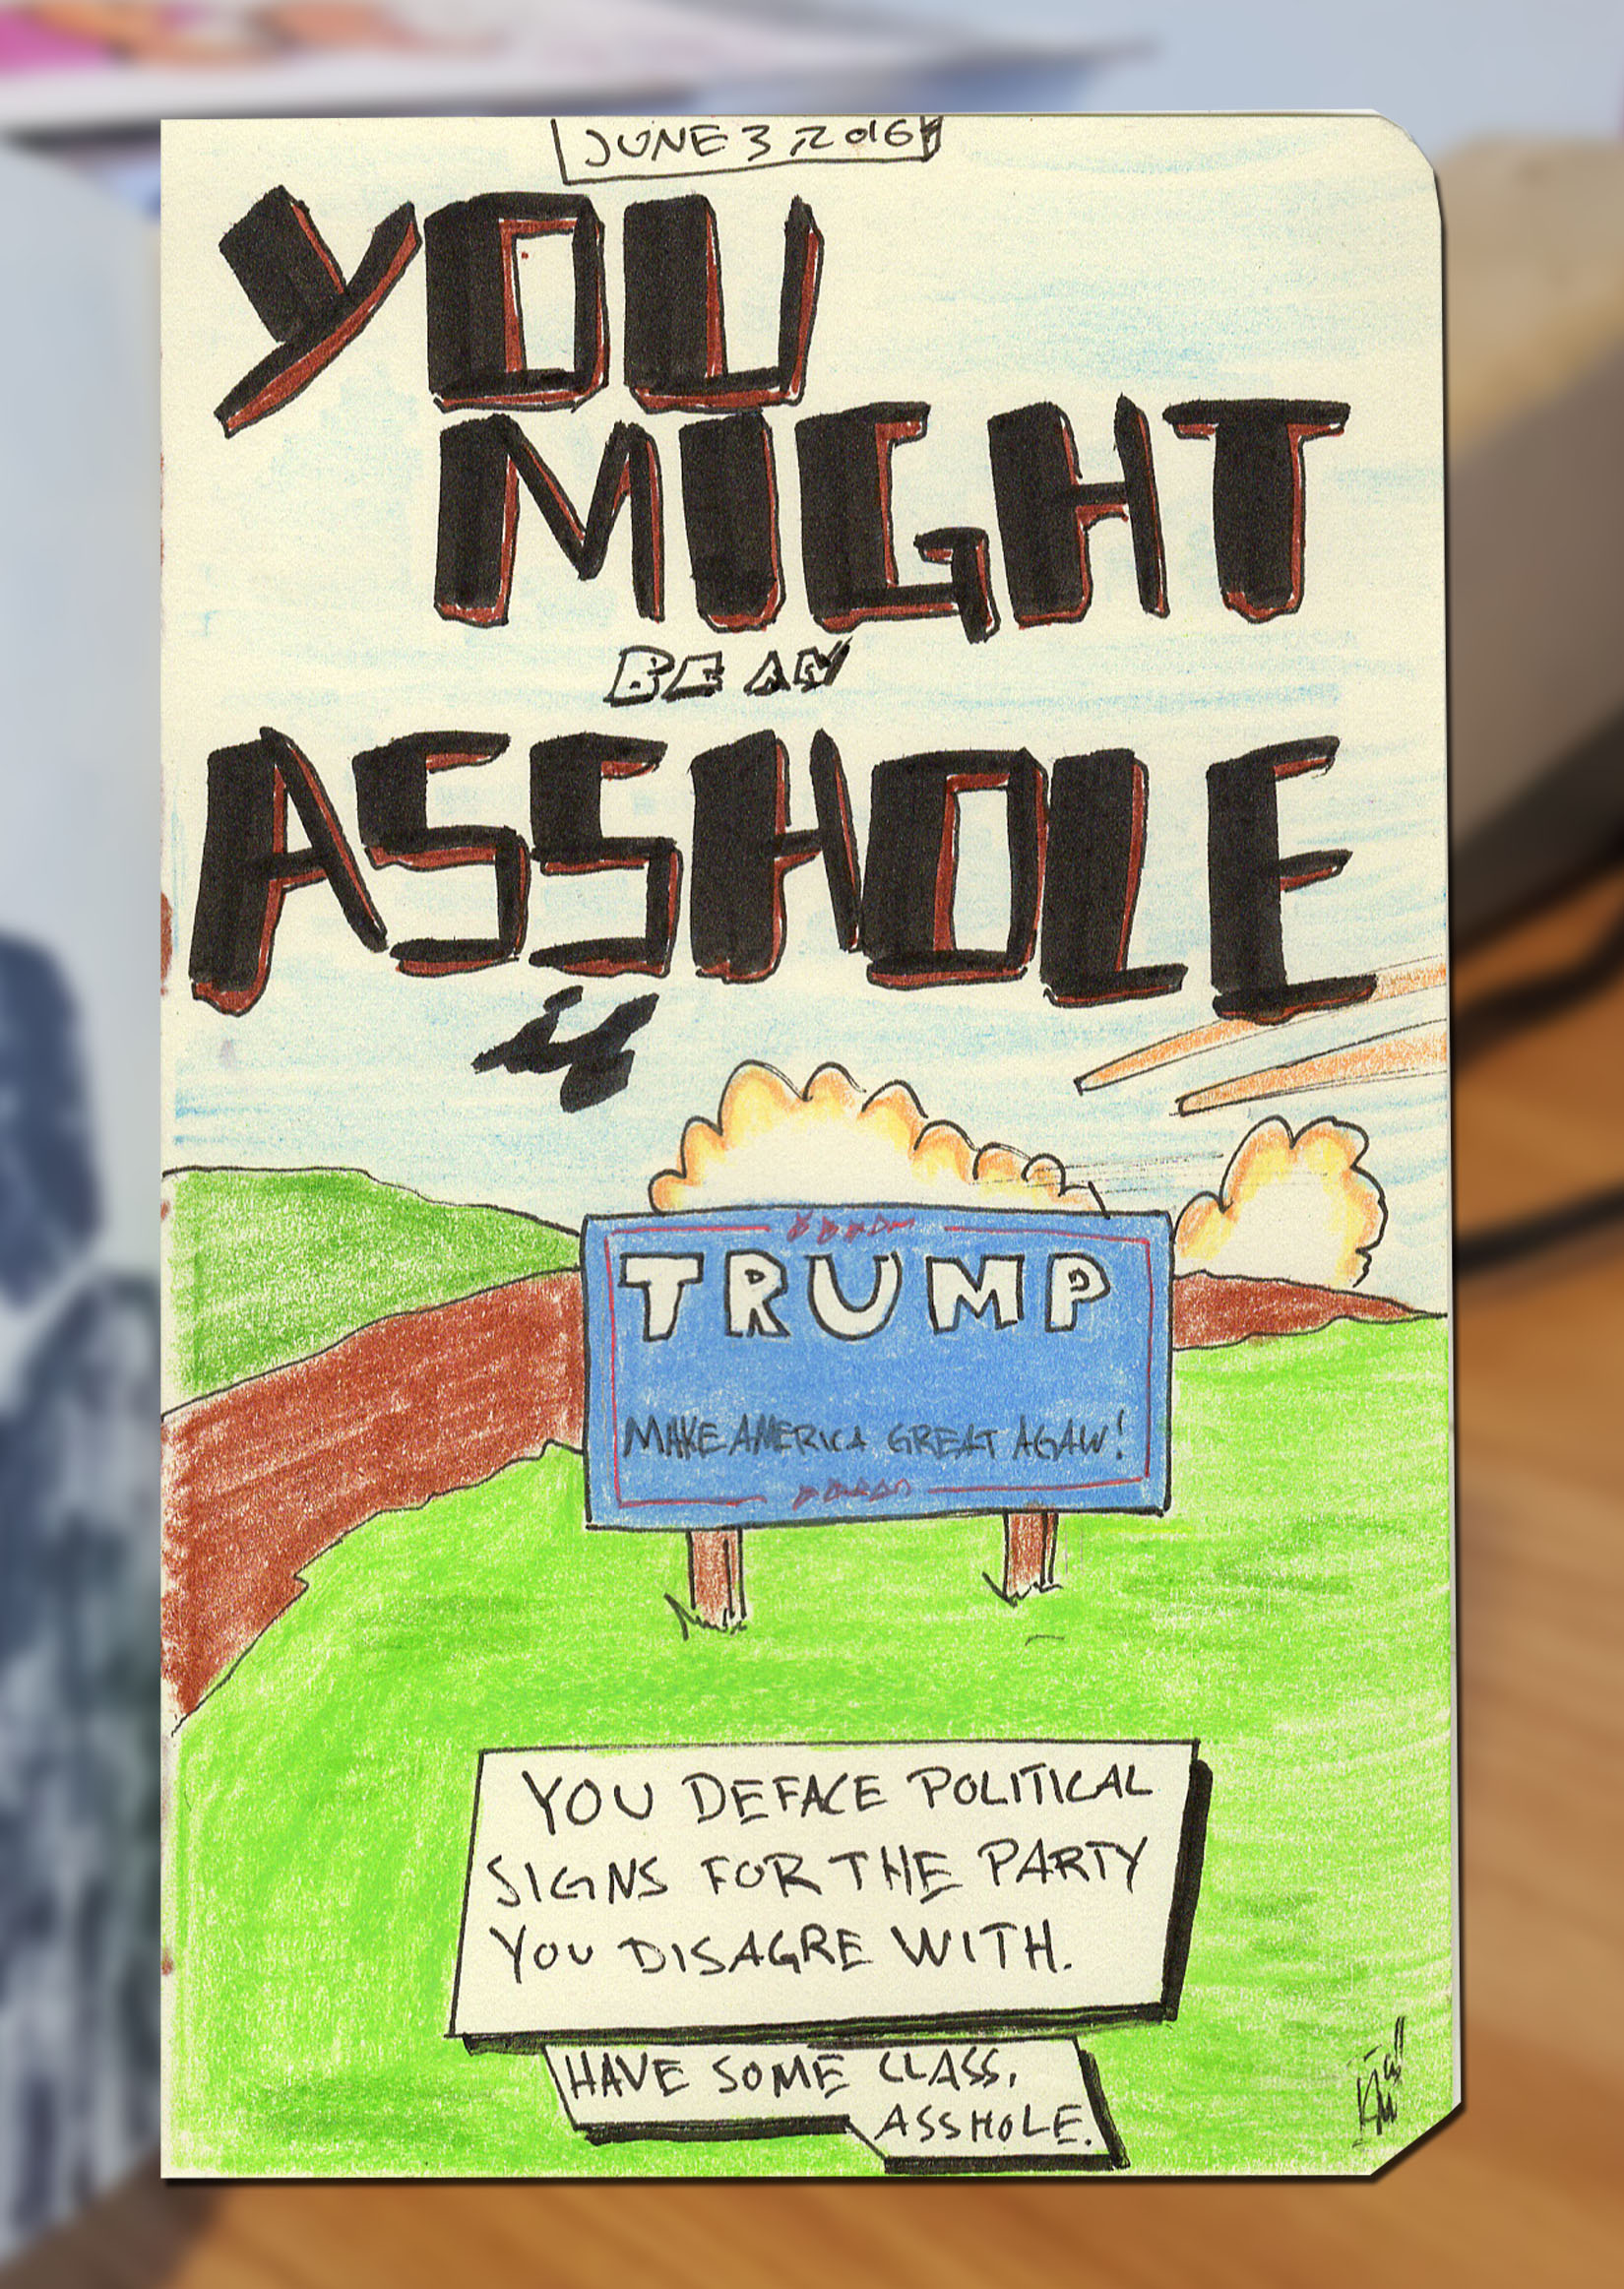 JUNE 3, 2016
YOU
MIGHT
BE AN
ASSHOLE
if
TRUMP
MAKE AMERICA GREAT AGAIN!
YOU DEFACE POLITICAL
SIGNS FOR THE PARTY
YOU DISAGRE WITH.
HAVE SOME CLASS,
ASSHOLE.